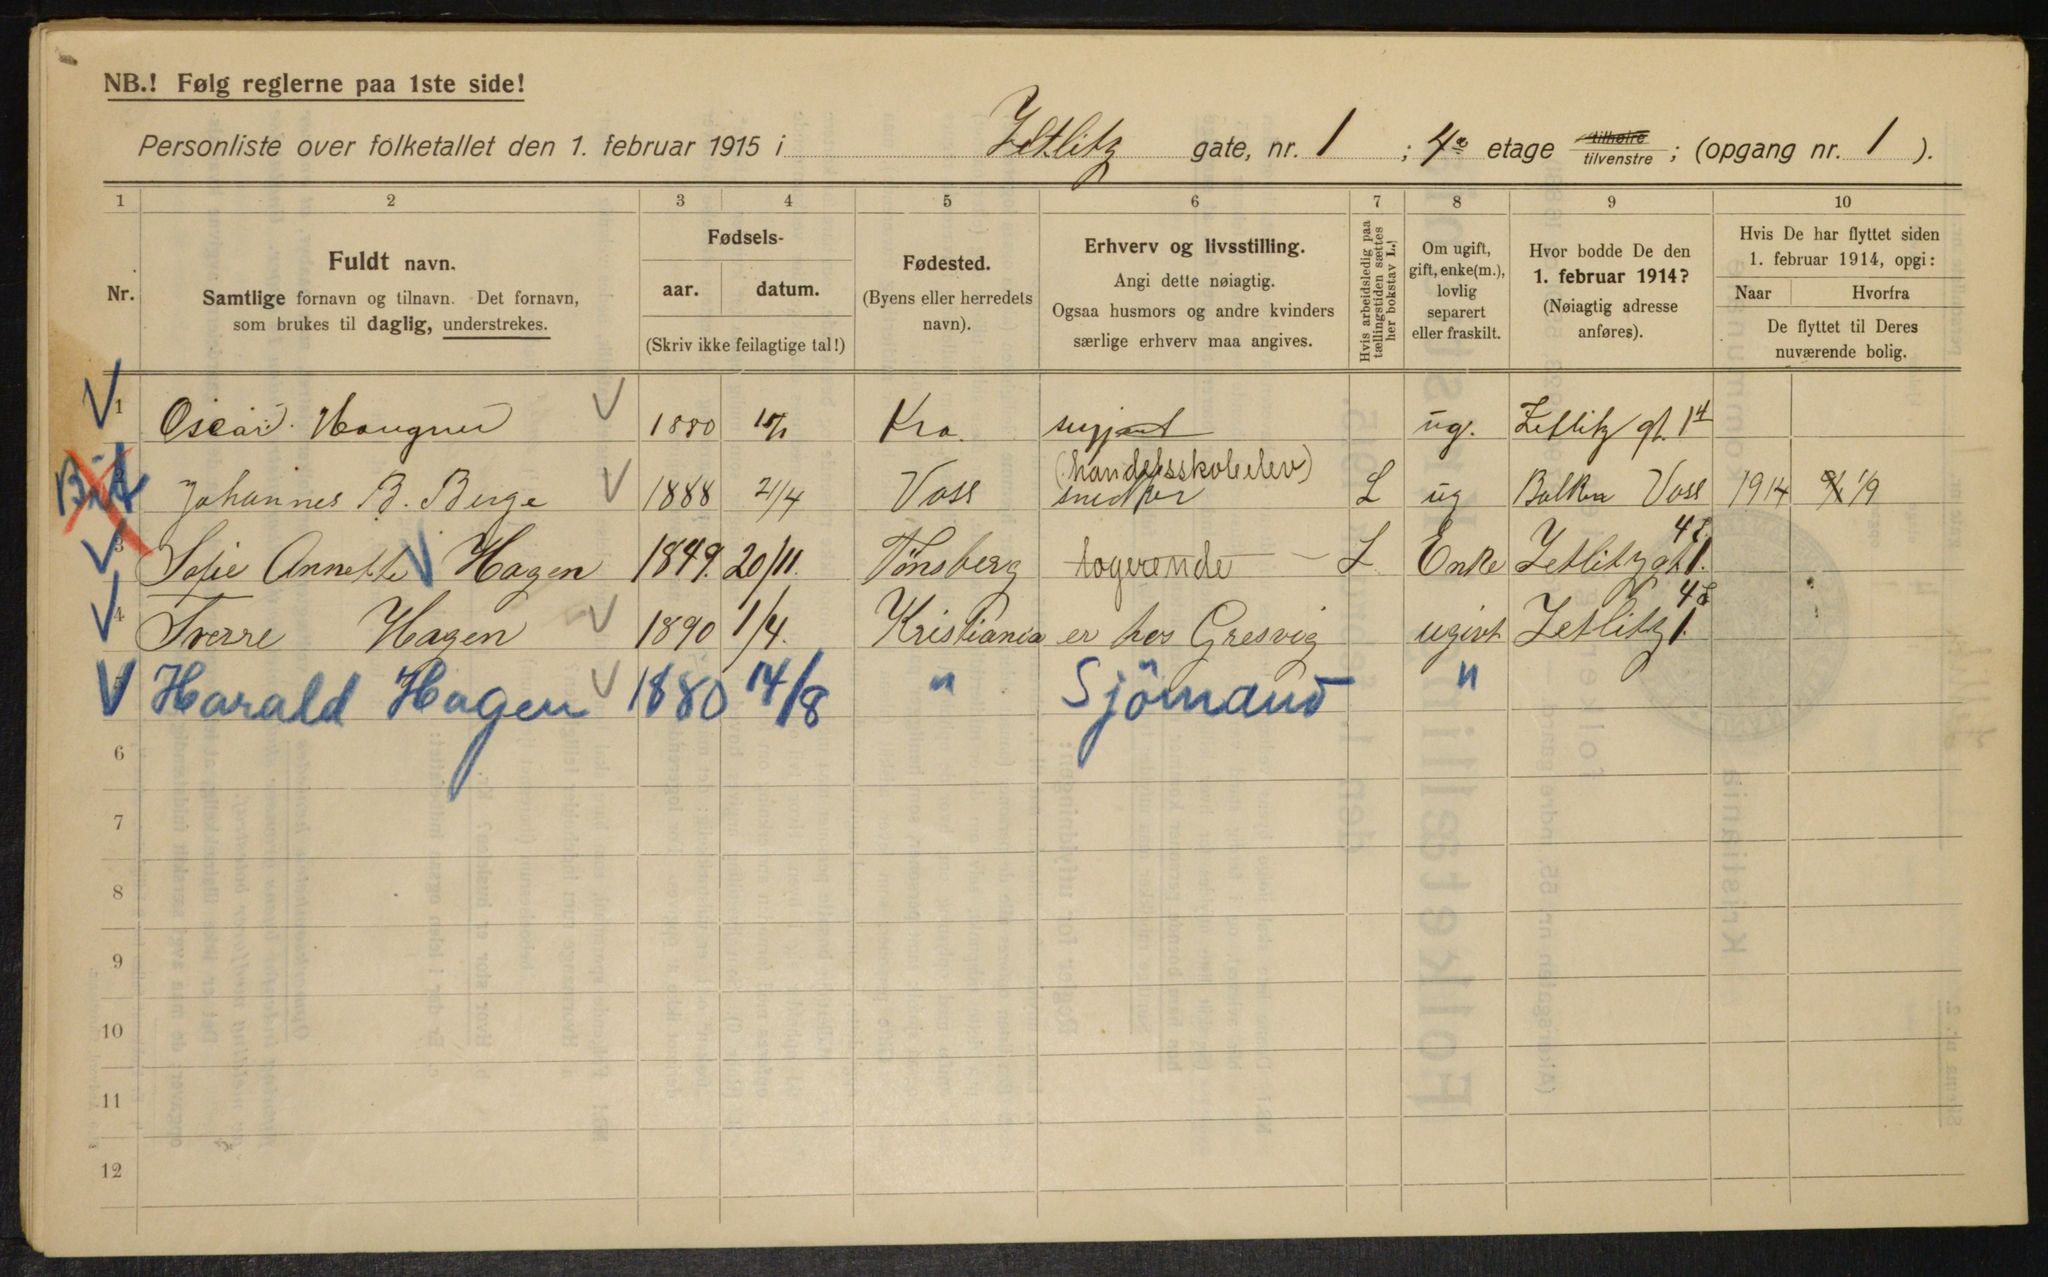 NB.! Følg reglerne paa 1ste side!
Personliste over folketallet den 1. februar 1915 i Zetlitz gate, nr. 1 ; 4de etage tilhøire tilvenstre ; (opgang nr. 1 ).
1 2 3 4 5 6 7 8 9 10
Nr.
Fuldt navn.
Samtlige fornavn og tilnavn. Det fornavn,
som brukes til daglig, understrekes.
Fødsels-
aar. datum.
(Skriv ikke feilagtige tal!)
Fødested.
(Byens eller herredets
navn).
Erhverv og livsstilling.
Angi dette nøiagtig.
Ogsaa husmors og andre kvinders
særlige erhverv maa angives.
Hvis arbeidsledig paa
tællingstiden sættes
her bokstav L.!
Om ugift,
gift, enke(m.),
lovlig
separert
eller fraskilt.
Hvor bodde De den
1. februar 1914?
(Nøiagtig adresse
anføres).
Hvis De har flyttet siden
1. februar 1914, opgi:
Naar Hvorfra
De flyttet til Deres
nuværende bolig.
1 Oscar Haugner 1880 Kra. ug. Zetlitz gt. 1
(handelsskoleelev)
Johannes B. Berge 1888 21/4 Voss snedker L ug Voss 1914 1/9
3 Sofie Annette Hagen 1849. 20/11. Tønsberg logerende L Enke Zetlitzgt 1.
4 Sverre Hagen 1890 1/4. Kristiania er hos Gresvig ugivt Zetlitz 1.
Harald Hagen 1880 14/8 " Sjömand "
6
7
8
9
10
11
12